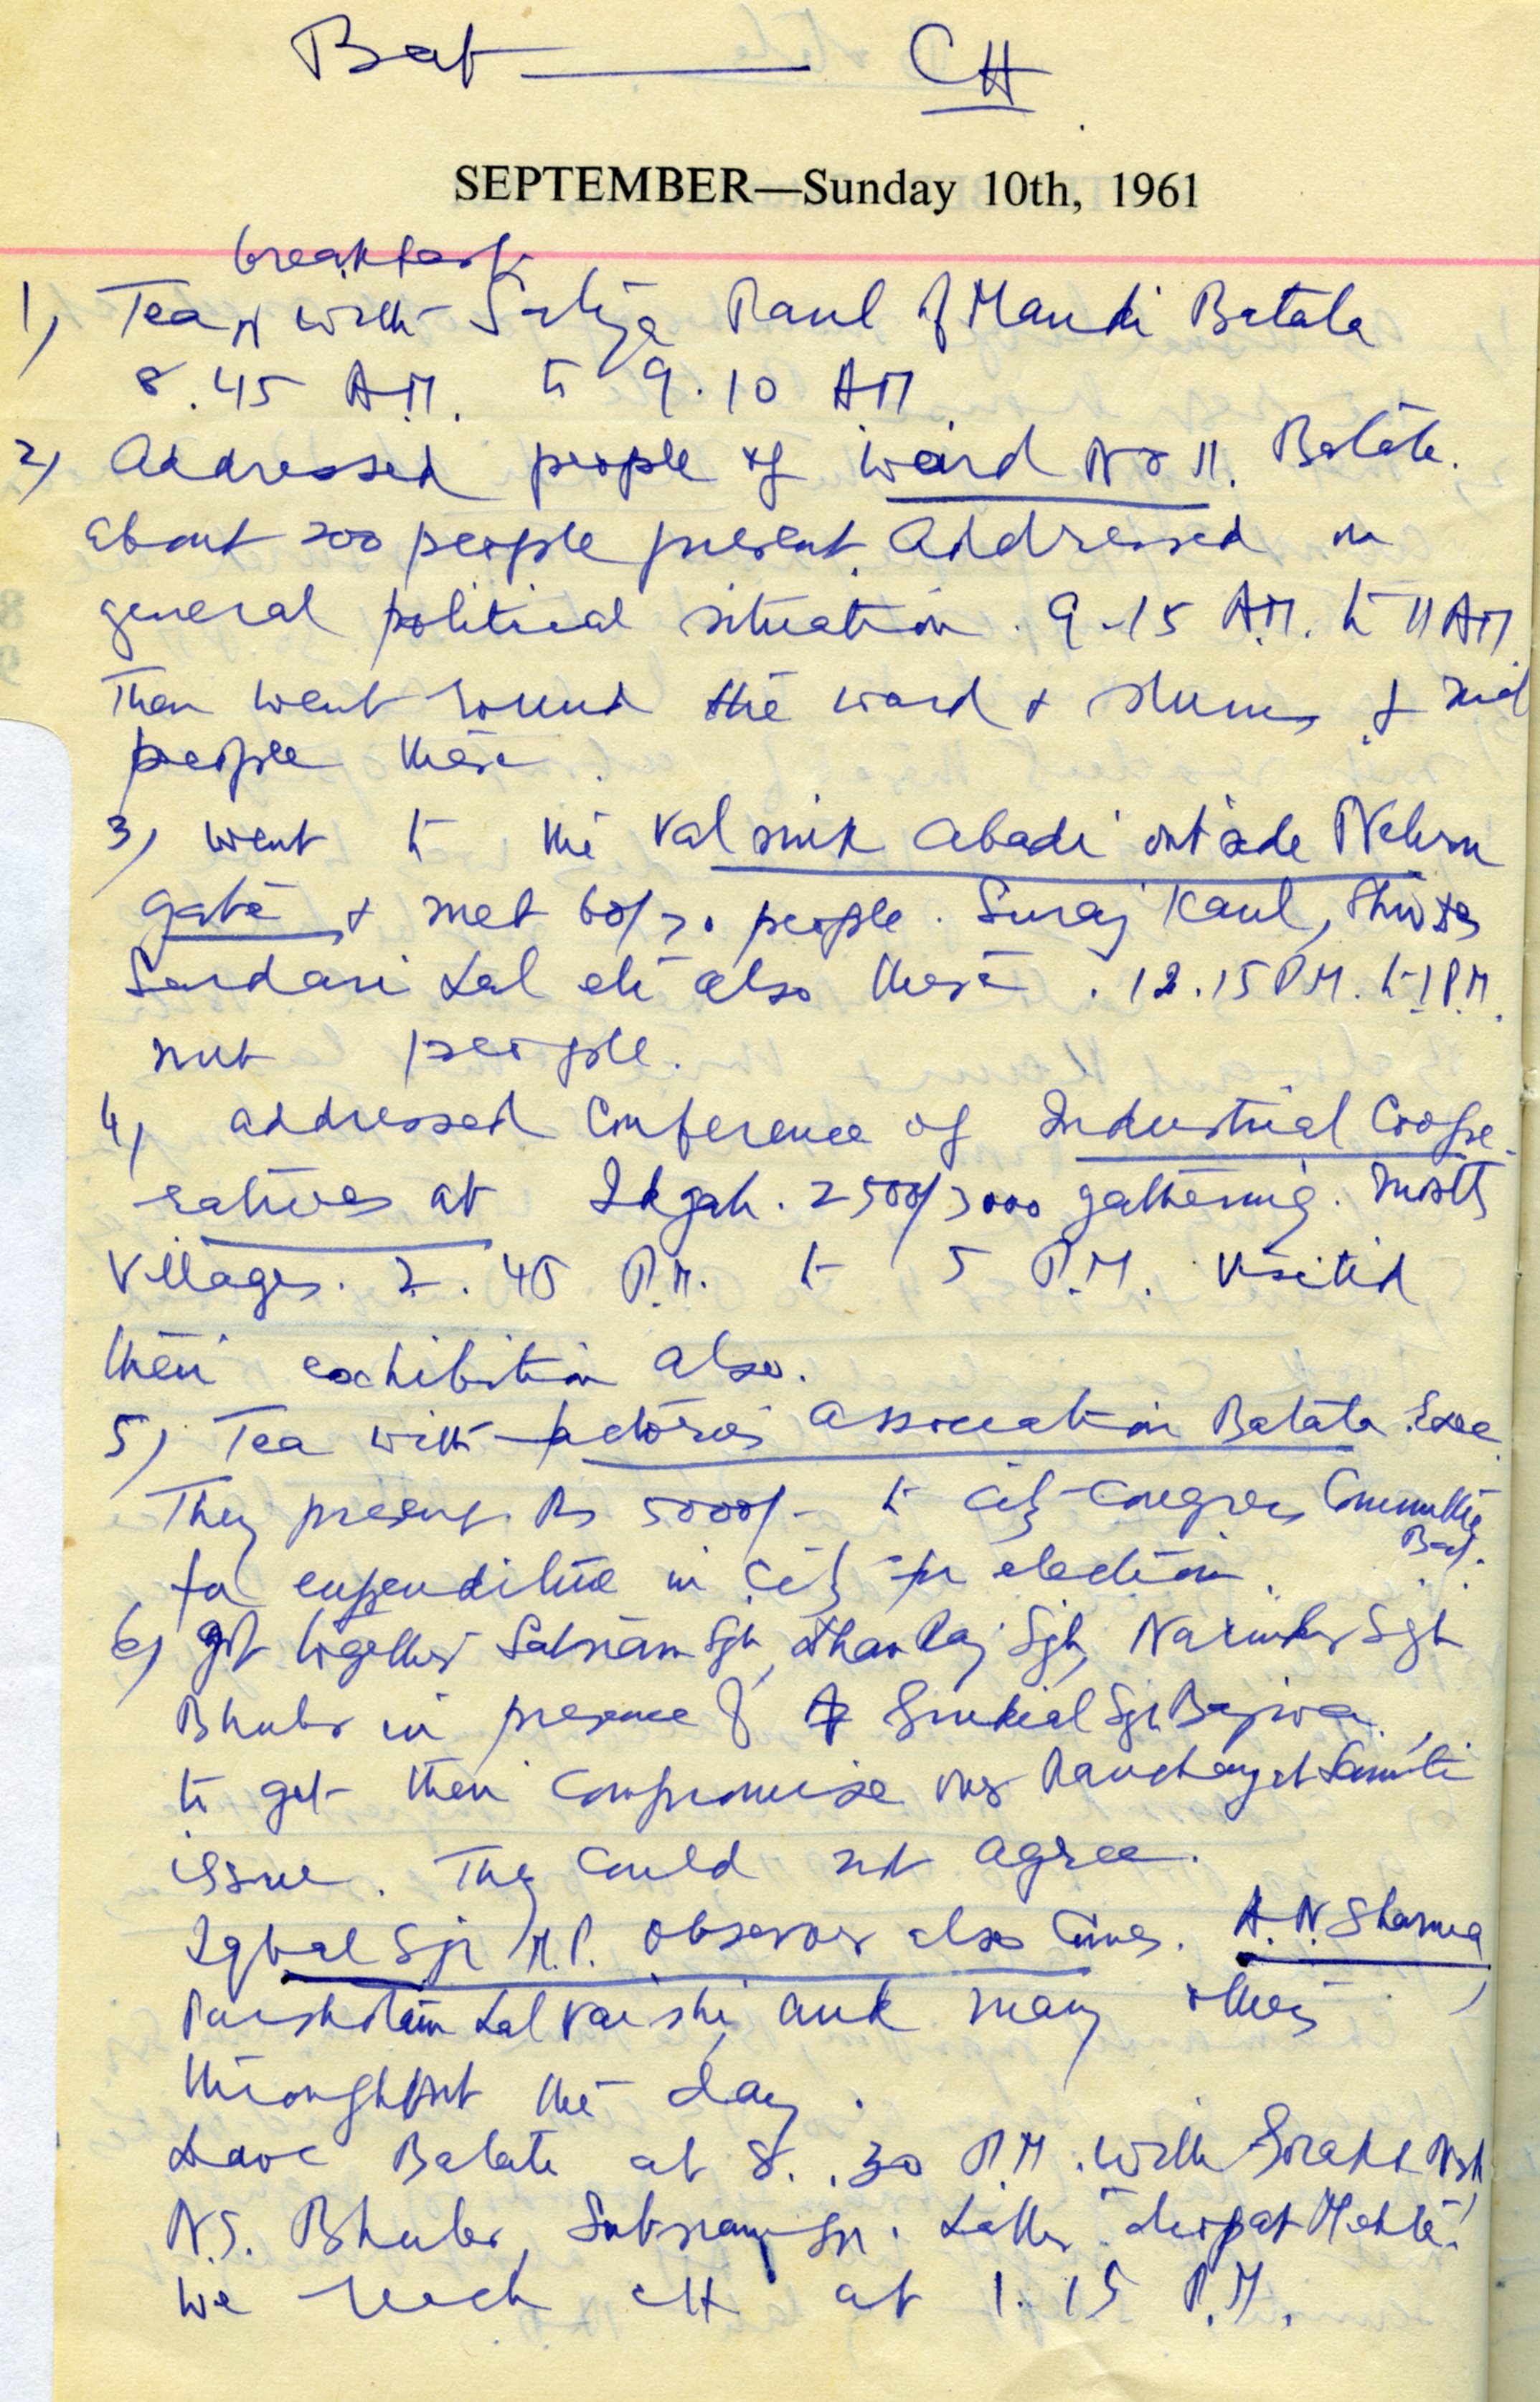 Bat —— CH
SEPTEMBER—Sunday 10th, 1961
breakfast
1) Tea ^ with Satya Paul of Mandi Batala
8.45 A.M. to 9.10 AM
2) Addressed people of ward No 11. Batala.
about 200 people present. Addressed on
general political situation. 9-15 A.M. to 11 AM
Then went round the ward & slums &
people there.
3) went to the Valmik abadi outside Nehru
gate & met 60/70 people. Suraj Kaul,
Sardari Lal etc also there. 12.15 P.M. to 1 P.M.
met people.
4) addressed Conference of Industrial Coope-
ratives at Idgah. 2500/3000 gathering. mostly
Villages. 2.45 P.M. to 5 P.M. Visited
their exhibition also.
5) Tea with factories association Batala.
They present Rs 5000/- to City Congress Committee
Bat.
for expenditure in City for election.
6) got together Satnam Sgh, Sgh, Narinder Sgh
Bhuler in presence of Gurdial Sgh Bajwa
to get their compromise over Panchayat Samiti
issue. They could not agree.
Iqbal Sgh M.P. observer also comes. A.N. Sharma,
Purshotam Lal and many others
throughout the day.
Leave Batala at 8.30 P.M. with
N.S. Bhuler, Satnam Sgh. Mehta.
We reach CH at 1.15 P.M.